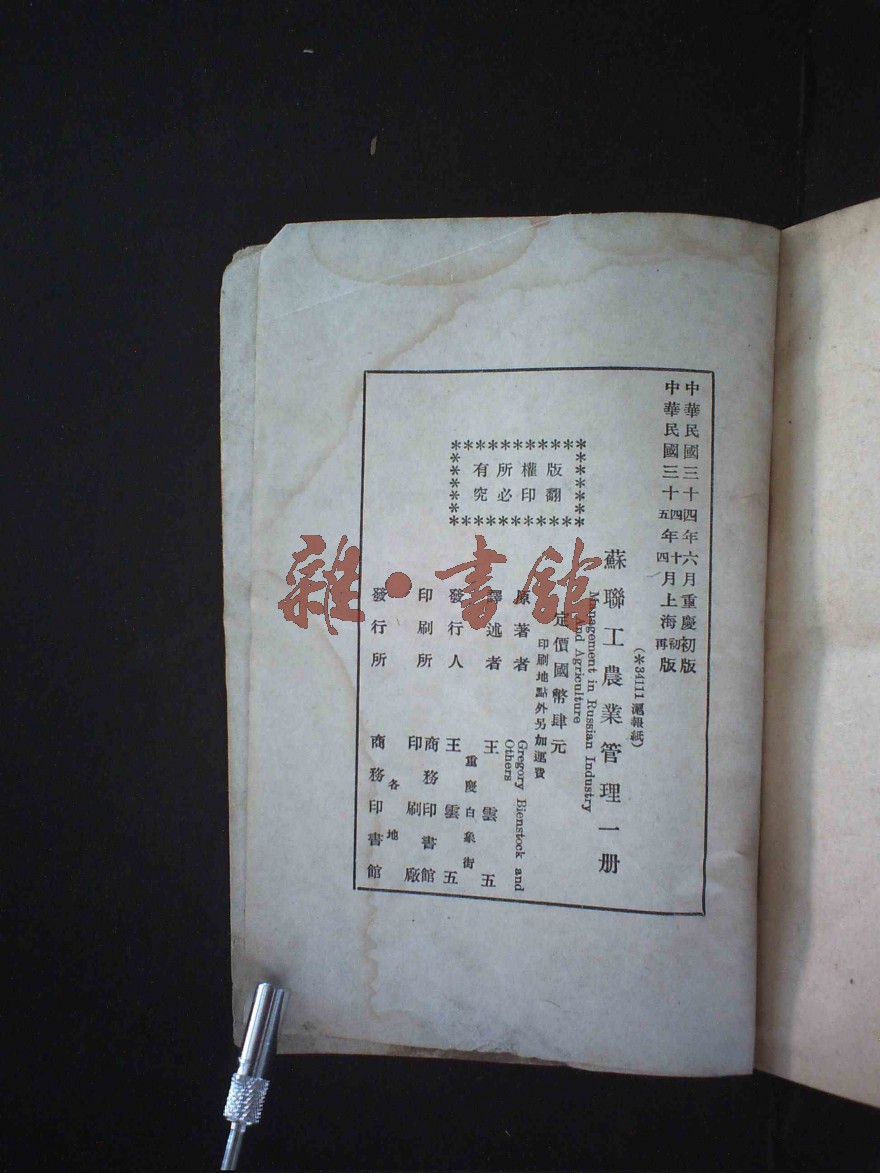 中華民國三十四年六月重慶初版
中華民國三十四年十月上海初版
五 四 再
(*34111 滬報紙)
蘇聯工農業管理一册
Management in Russian Industry
And Agriculture
定價國幣肆元
印刷地點外另加運費
版權所有
翻印必究
原著者 Gregory Bienstock and
Others
譯述者 王雲五
發行人 王雲五
重慶白象街
印刷所 商務印書館
印刷廠
發行所 各地
商務印書館
雜·書館